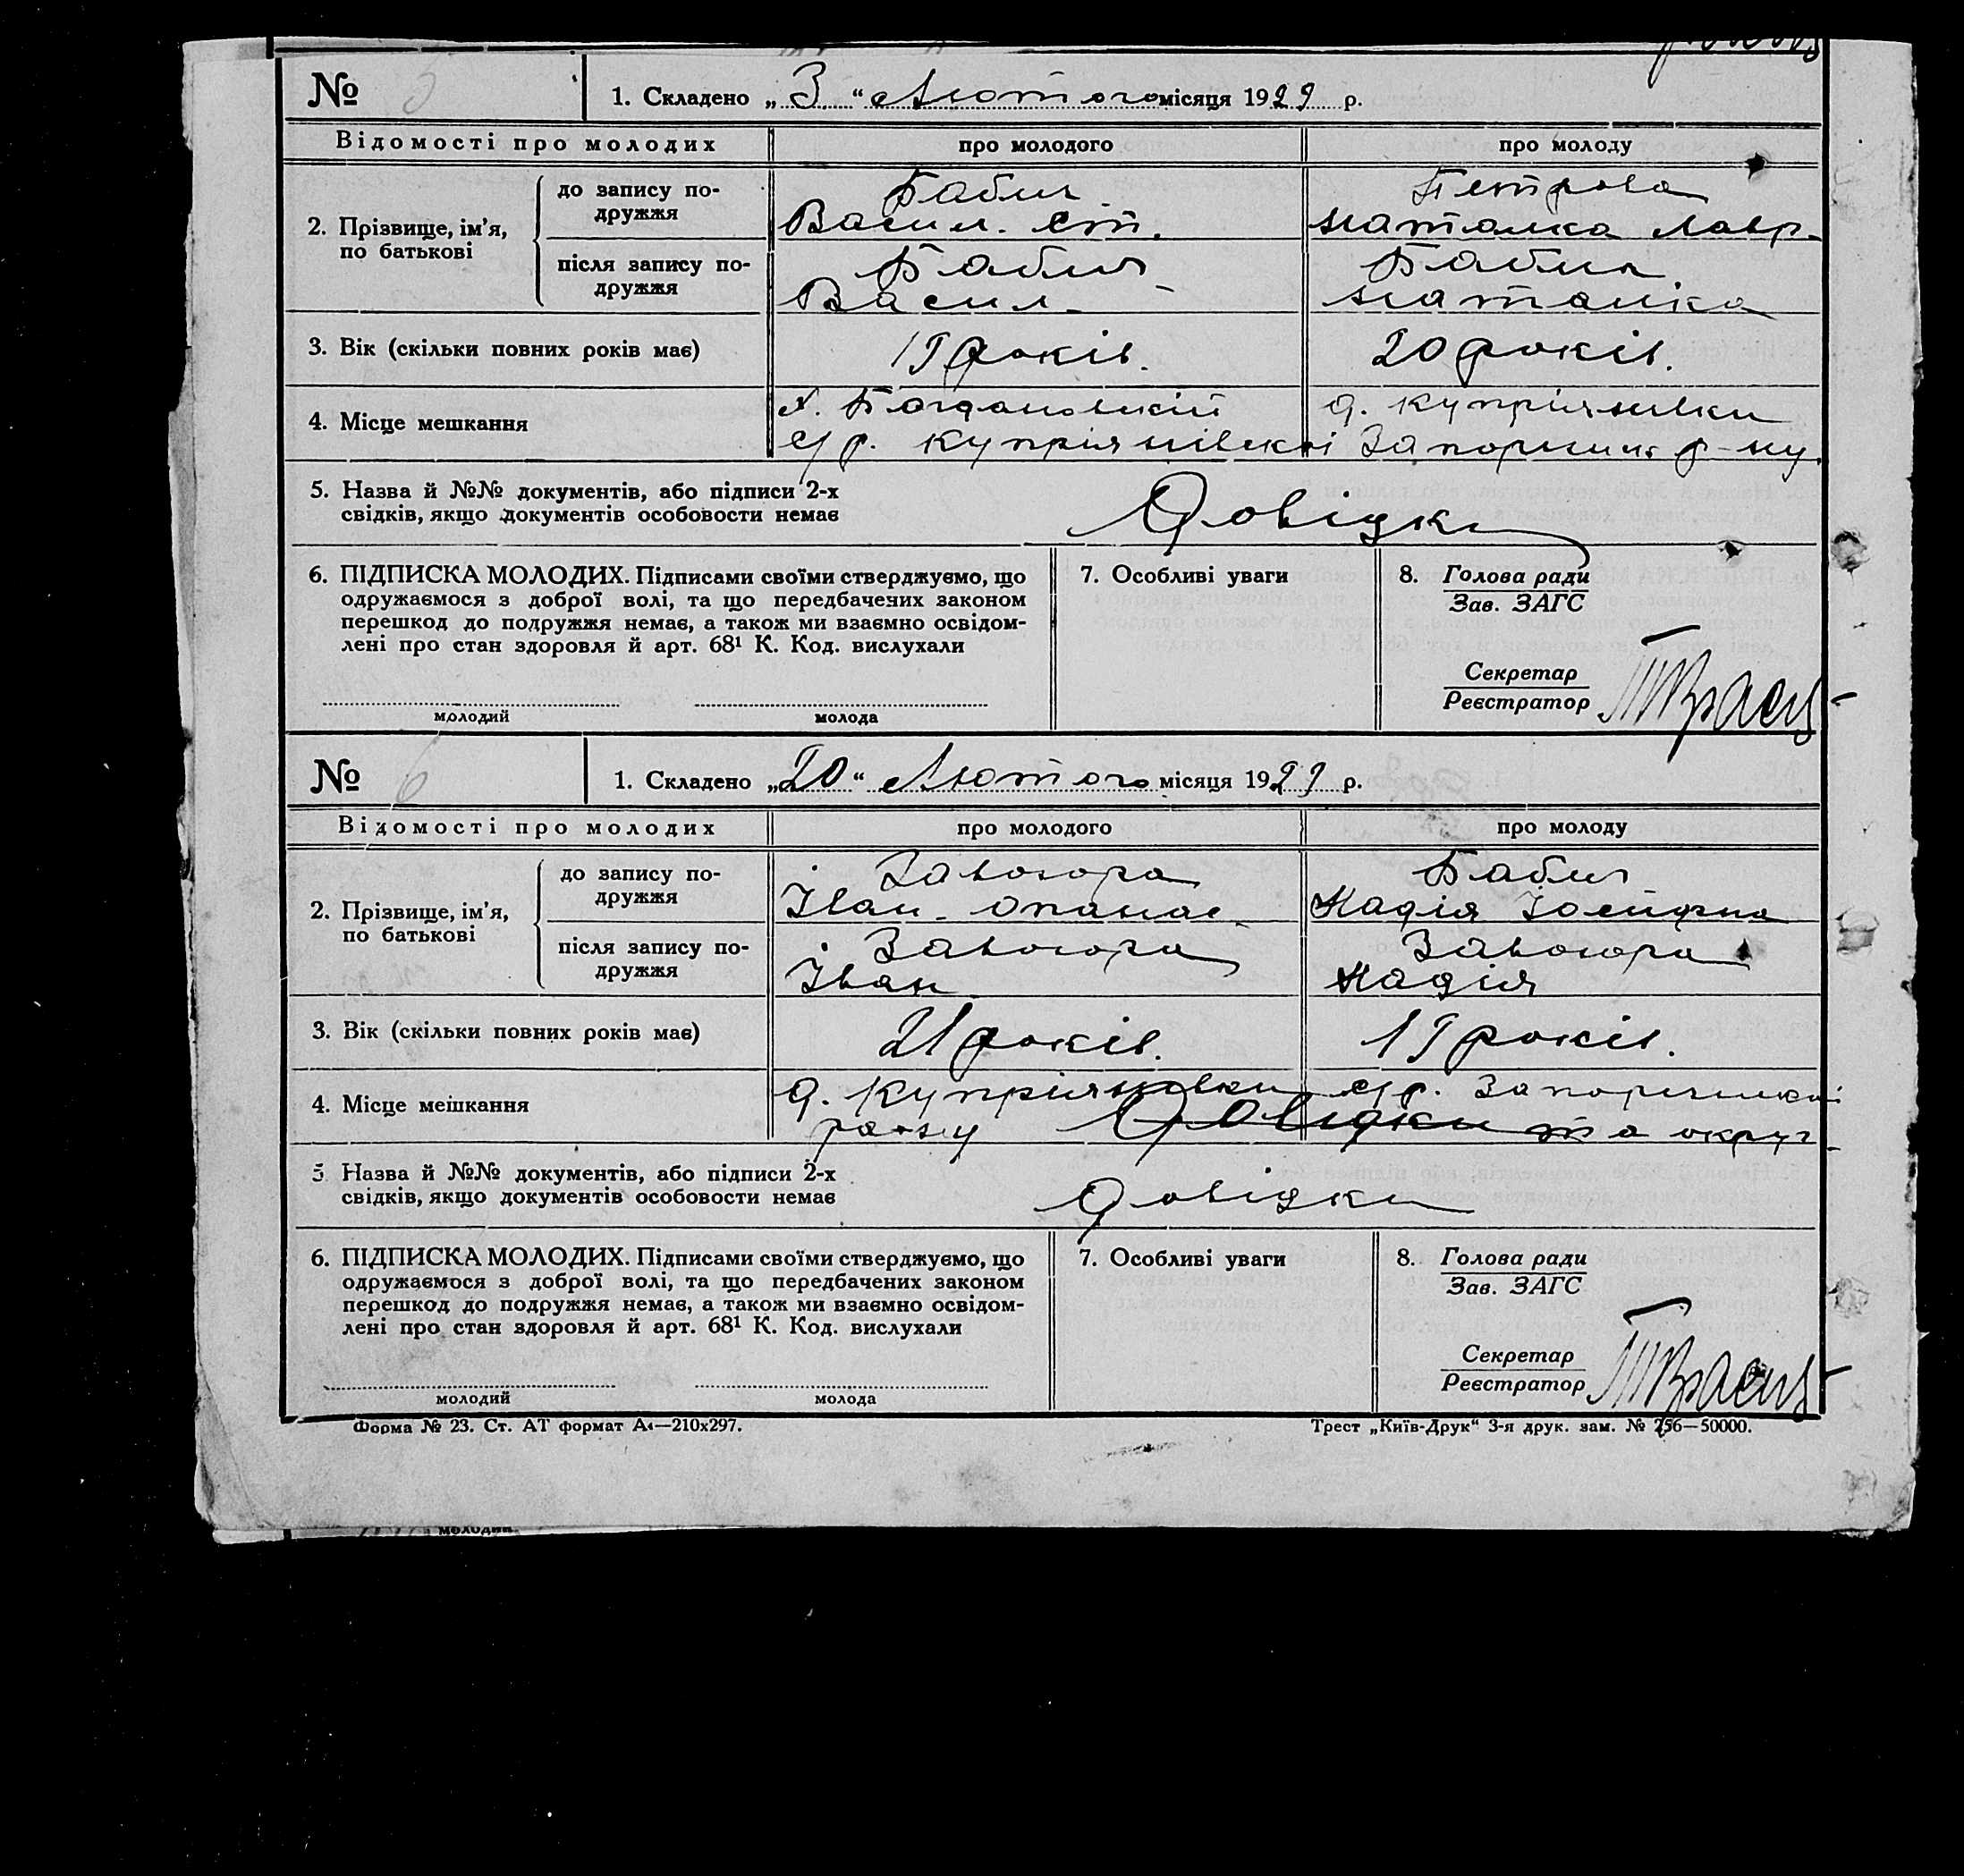 № 5
1. Складено „3“ Лютого місяця 1929 р.
Відомості про молодих
про молодого
про молоду
2. Прізвище, ім’я, по батькові
до запису подружжя
Бабич
Васил. Ст.
Петрова
Наталка Лавр.
після запису подружжя
Бабич
Васил.
Бабич
Наталка
3. Вік (скільки повних років має)
19 років.
20 років.
4. Місце мешкання
х. Богдановский
с/р. Купріянівскоі
д. Купріянивки
Запорижж р-ну
5. Назва й №№ документів, або підписи 2-х
свідків, якщо документів особовости немає
Довідки
6. ПІДПИСКА МОЛОДИХ. Підписами своїми стверджуємо, що
одружаємося з доброї волі, та що передбачених законом
перешкод до подружжя немає, а також ми взаємно освідом-
лені про стан здоровля й арт. 68¹ К. Код. вислухали
молодий
молода
7. Особливі уваги
8. Голова ради
Зав. ЗАГС
Секретар
Реєстратор
№ 6
1. Складено „20“ Лютого місяця 1929 р.
Відомості про молодих
про молодого
про молоду
2. Прізвище, ім’я, по батькові
до запису подружжя
Завгора
Іван. Опанас.
Бабич
Надія Іосипфна
після запису подружжя
Іван
Надія
3. Вік (скільки повних років має)
21 років.
19 років.
4. Місце мешкання
д. Купріянивки с/р. Запорижскоі
та округ.
5 Назва й №№ документів, або підписи 2-х
свідків, якщо документів особовости немає
Довідки
6. ПІДПИСКА МОЛОДИХ. Підписами своїми стверджуємо, що
одружаємося з доброї волі, та що передбачених законом
перешкод до подружжя немає, а також ми взаємно освідом-
лені про стан здоровля й арт. 68¹ К. Код. вислухали
молодий
молода
7. Особливі уваги
8. Голова ради
Зав. ЗАГС
Секретар
Реєстратор
Форма № 23. Ст. АТ формат А₄—210х297.
Трест „Київ-Друк“ 3-я друк. зам. № 756—50000.
молодий